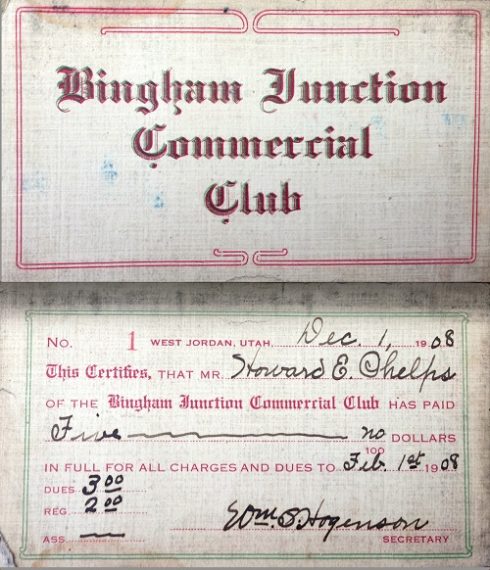 Bingham Junction
Commercial
Club
No. 1 WEST JORDAN, UTAH. Dec. 1, 1908
This Certifies, THAT MR. Howard E. Phelps
OF THE Bingham Junction Commercial Club HAS PAID
Five no/100 DOLLARS
IN FULL FOR ALL CHARGES AND DUES TO Feb. 1st 1908
DUES 3.00
REG. 2.00
ASS. Wm. S. Hogenson
SECRETARY